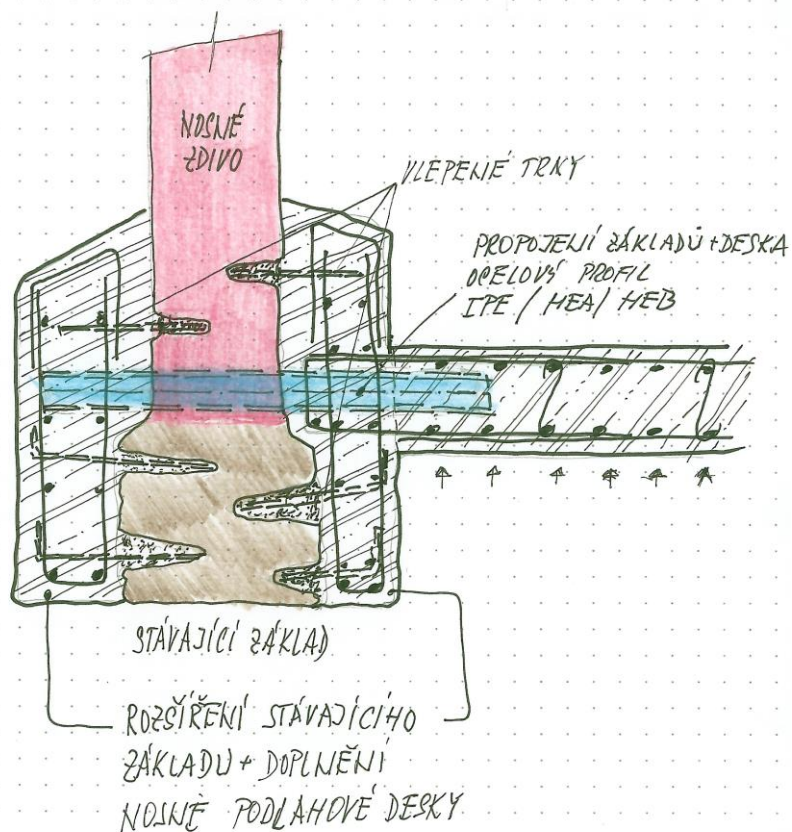 NOSNÉ
ZDIVO
VLEPENÉ TRNY
PROPOJENÍ ZÁKLADŮ+DESKA
OCELOVÝ PROFIL
IPE / HEA / HEB
STÁVAJÍCÍ ZÁKLAD
ROZŠÍŘENÍ STÁVAJÍCÍHO
ZÁKLADU + DOPLNĚNÍ
NOSNÉ PODLAHOVÉ DESKY